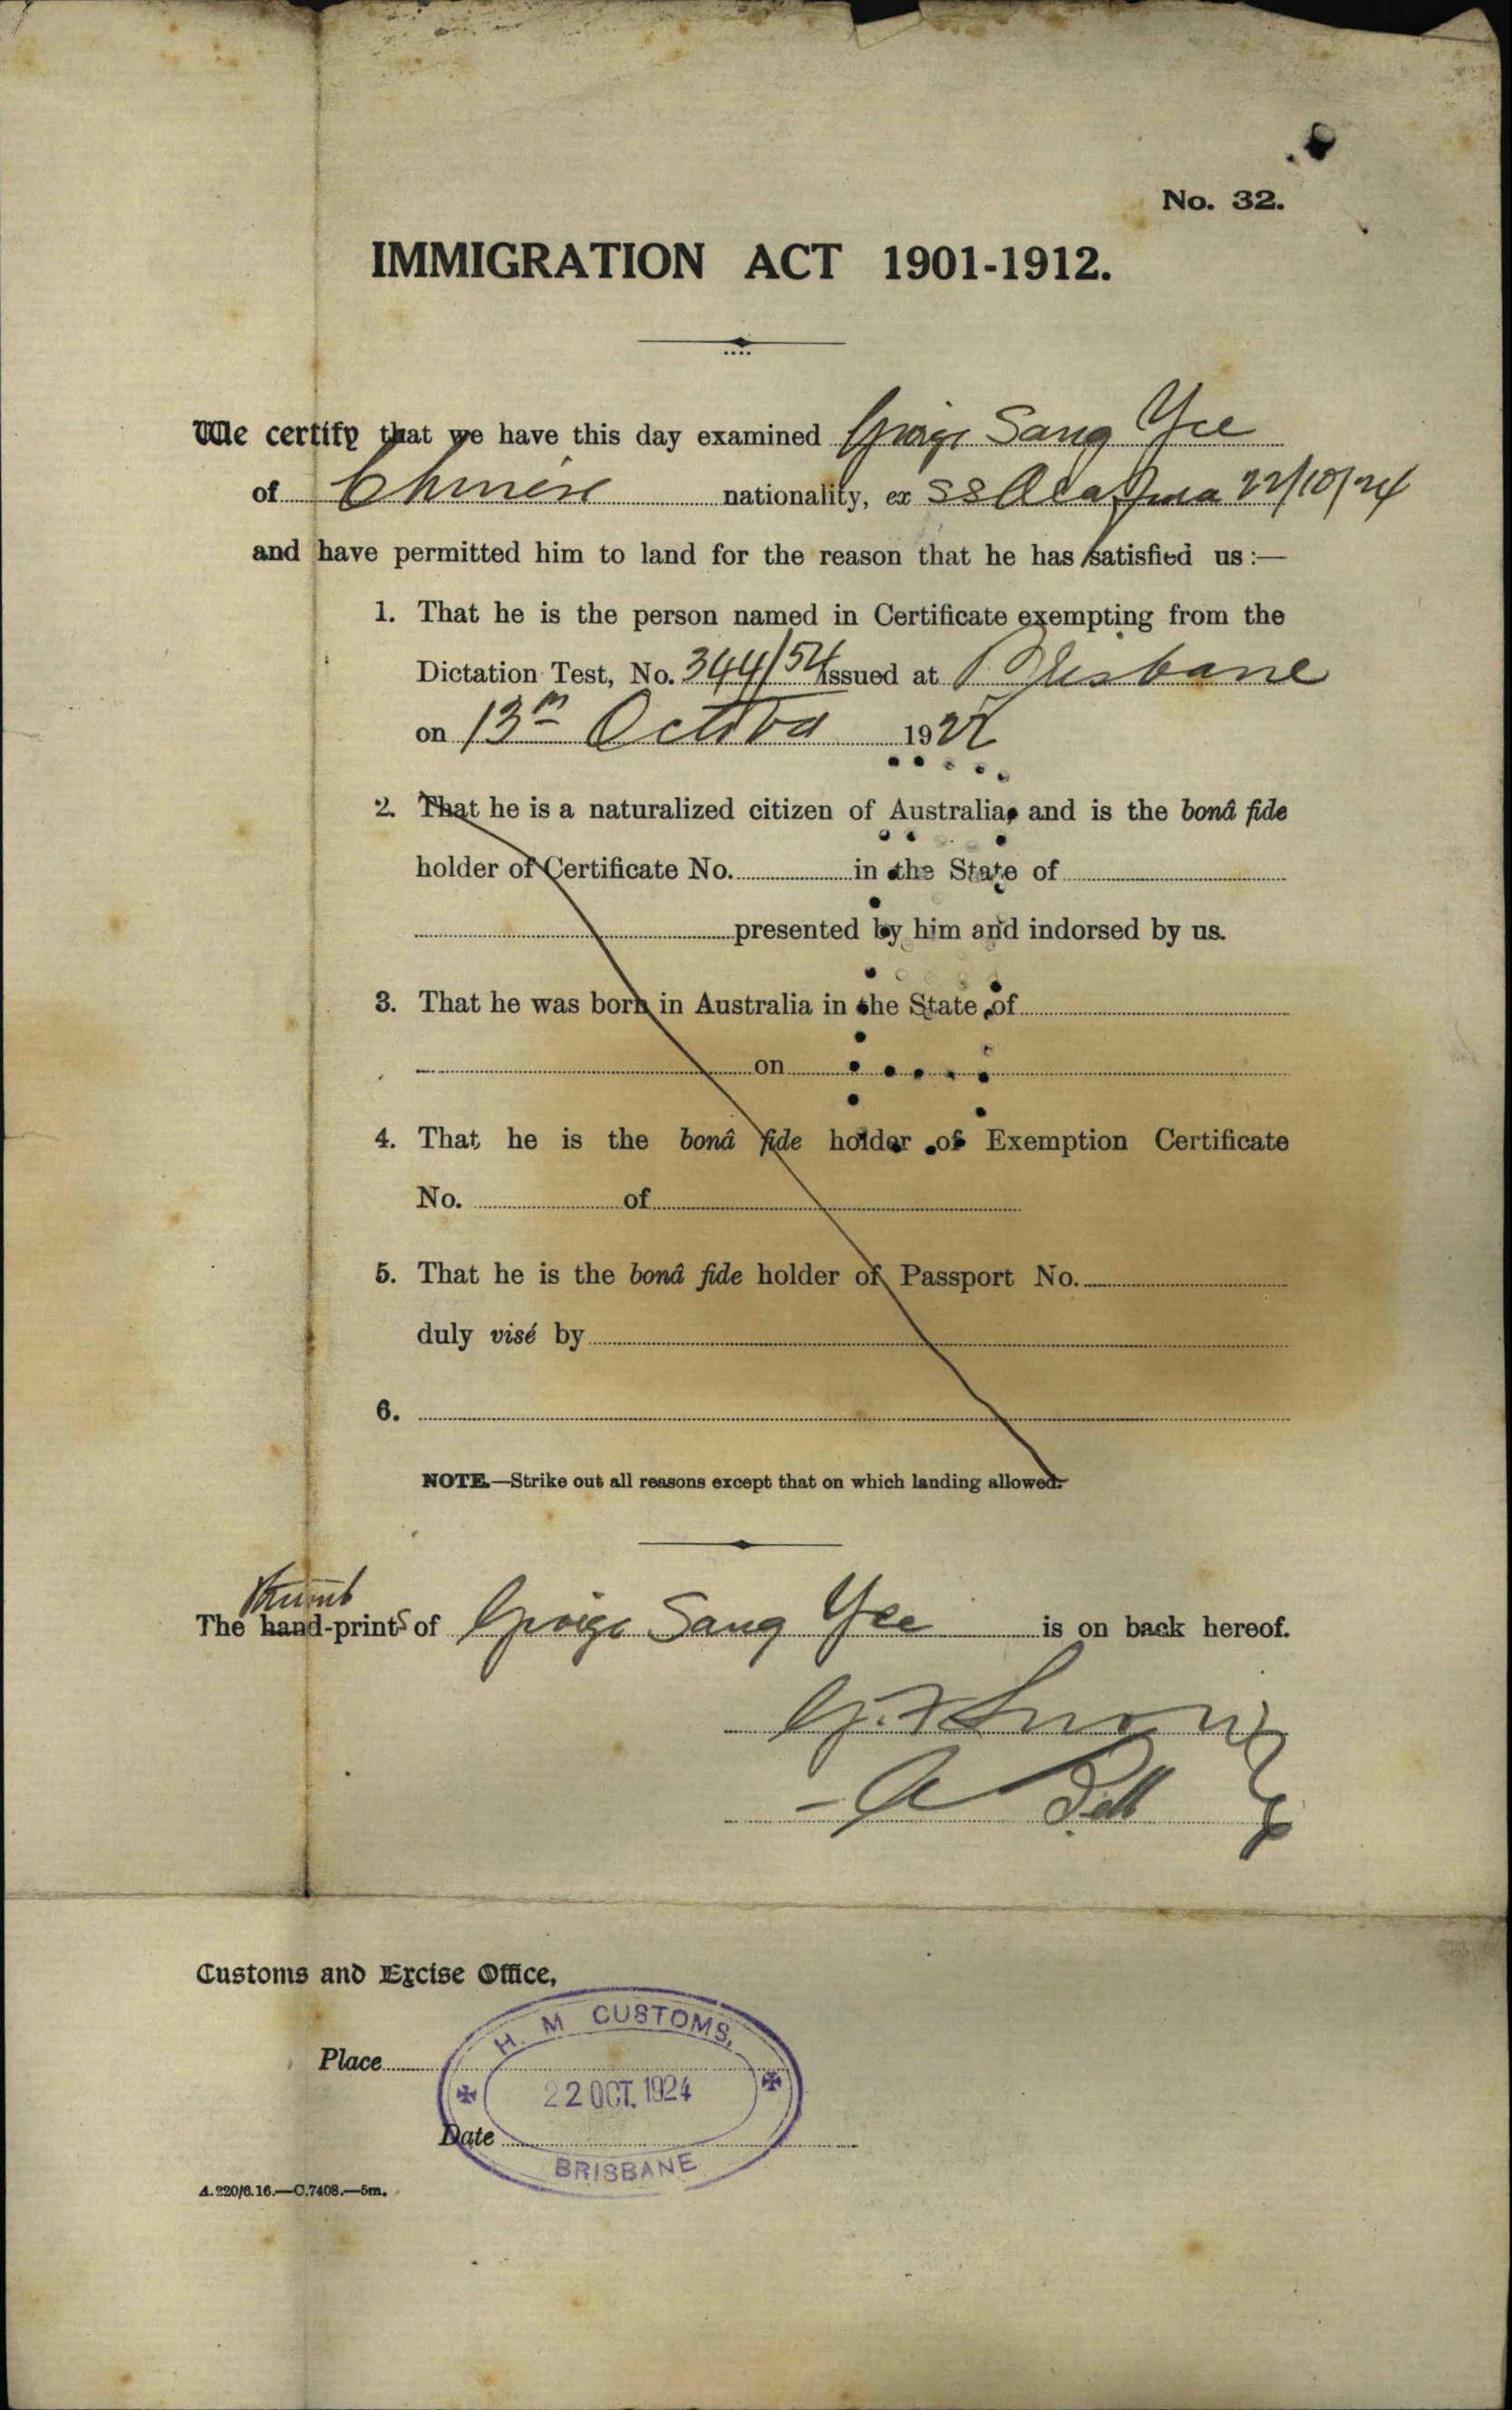 No. 32.
IMMIGRATION ACT 1901-1912.
We certify that we have this day examined George Sang Yee
of Chinese nationality, ex SS 22/10/24
and have permitted him to land for the reason that he has satisfied us :—
1. That he is the person named in Certificate exempting from the
Dictation Test, No. 344/54 issued at Brisbane
on 13th October 192
2. That he is a naturalized citizen of Australia, and is the bonâ fide
holder of Certificate No. in the State of
presented by him and indorsed by us.
3. That he was born in Australia in the State of
on
4. That he is the bonâ fide holder of Exemption Certificate
No. of
5. That he is the bonâ fide holder of Passport No.
duly visé by
6.
NOTE.—Strike out all reasons except that on which landing allowed.
Thumb
The hand-prints of George Sang Yee is on back hereof.
A Bell
Customs and Excise Office,
H. M CUSTOMS,
Place
22 OCT. 1924
Date
BRISBANE
A.220/6.16.—C.7408.—5m.